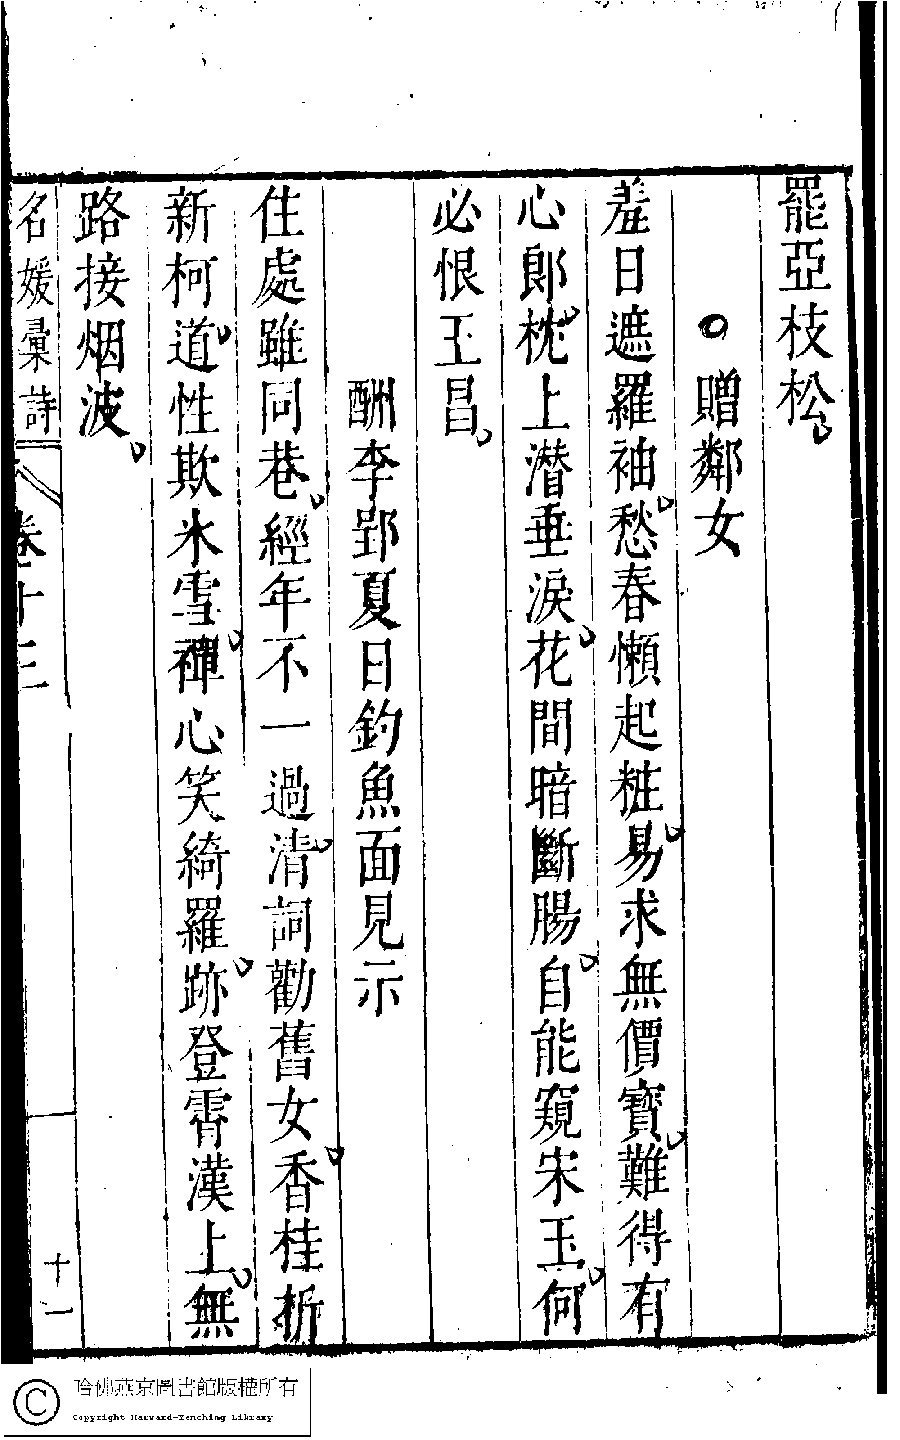 罷亞枝松
贈鄰女
羞日遮羅袖愁春懶起粧易求無價寶難得有
心郎枕上潛垂淚花間暗斷腸自能窺宋玉何
必恨王昌
酬李郢夏日釣魚面見示
住處雖同巷經年不一過清詞勸舊女香桂折
新柯道性欺氷雪禪心笑綺羅跡登霄漢上無
路接烟波
名媛彙詩
卷十三
十一
哈佛燕京圖書館版權所有
Copyright Harvard-Yenching Library